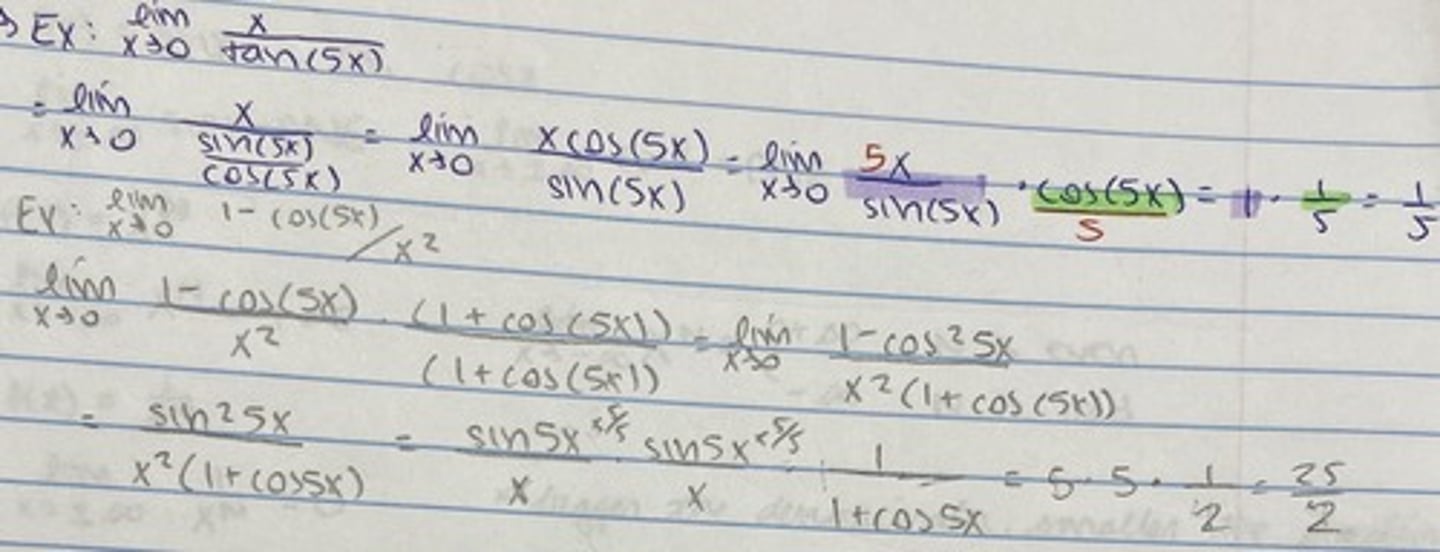 Ex: lim x→0 x/tan(5x)
= lim x→0 x/(sin(5x)/cos(5x)) = lim x→0 xcos(5x)/sin(5x) = lim x→0 5x/sin(5x) · cos(5x)/5 = 1 · 1/5 = 1/5
Ex: lim x→0 1 - cos(5x)/x²
lim x→0 1 - cos(5x)/x² · (1 + cos(5x))/(1 + cos(5x)) = lim x→0 1 - cos²5x/x²(1 + cos(5x))
= sin²5x/x²(1 + cos5x) = sin5x/x ×5/5 · sin5x/x ×5/5 · 1/1+cos5x = 5 · 5 · 1/2 = 25/2